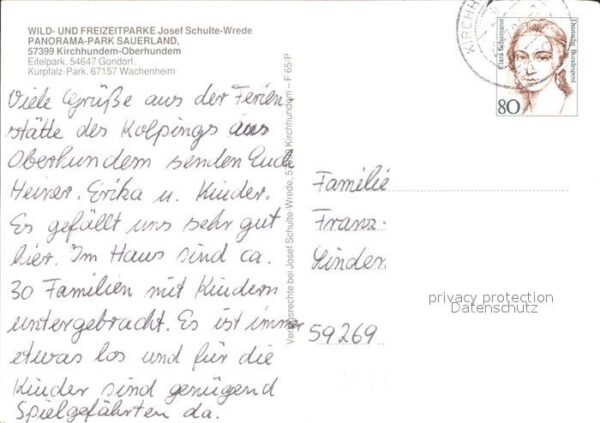 WILD- UND FREIZEITPARKE Josef Schulte-Wrede
PANORAMA-PARK SAUERLAND,
57399 Kirchhundem-Oberhundem
Eifelpark, 54647 Gondorf.
Kurpfalz-Park, 67157 Wachenheim
Viele Grüße aus der Ferien
stätte des Kolpings aus
Oberhundem senden Euch
Heiner, Erika u. Kinder.
Es gefällt uns sehr gut
hier. Im Haus sind ca.
30 Familien mit Kindern
untergebracht. Es ist immer
etwas los und für die
Kinder sind genügend
Spielgefährten da.
Verlagsrechte bei Josef Schulte-Wrede, Kirchhundem – F 65 P
KIRCHH
Clara Schumann
Deutsche Bundespost
80
Familie
Franz-
Linder
59269
privacy protection
Datenschutz